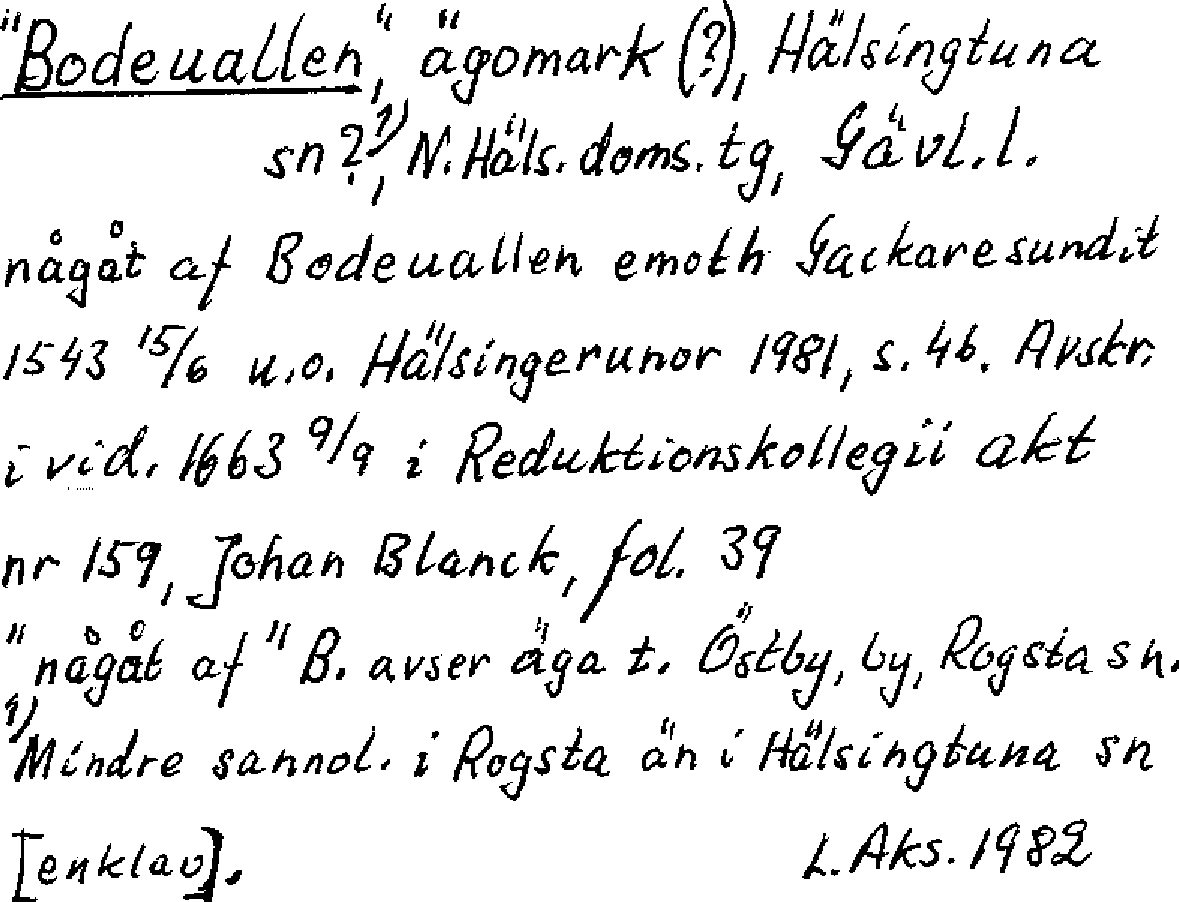 "Bodeuallen", ägomark (?), Hälsingtuna
sn?,1) N. Häls. doms. tg, Gävl. l.
något af Bodeuallen emoth Gackaresundit
1543 15/6 u.o. Hälsingerunor 1981, s. 46. Avskr.
i vid. 1663 9/9 i Reduktionskollegii akt
nr 159, Johan Blanck, fol. 39
"något af" B. avser äga t. Östby, by, Rogsta sn.
1) Mindre sannol. i Rogsta än i Hälsingtuna sn
[enklav]. L. Aks. 1982